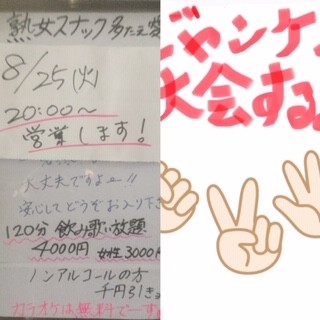 熟女スナック多たえ
8/25(火)
20:00〜
営業します!
大丈夫ですよー!!
安心してどうぞお入り下さ
120分 飲み歌い放題
4000円 女性3000円
ノンアルコールの方
千円引き
カラオケは無料でーす
じゃンケン
大会する